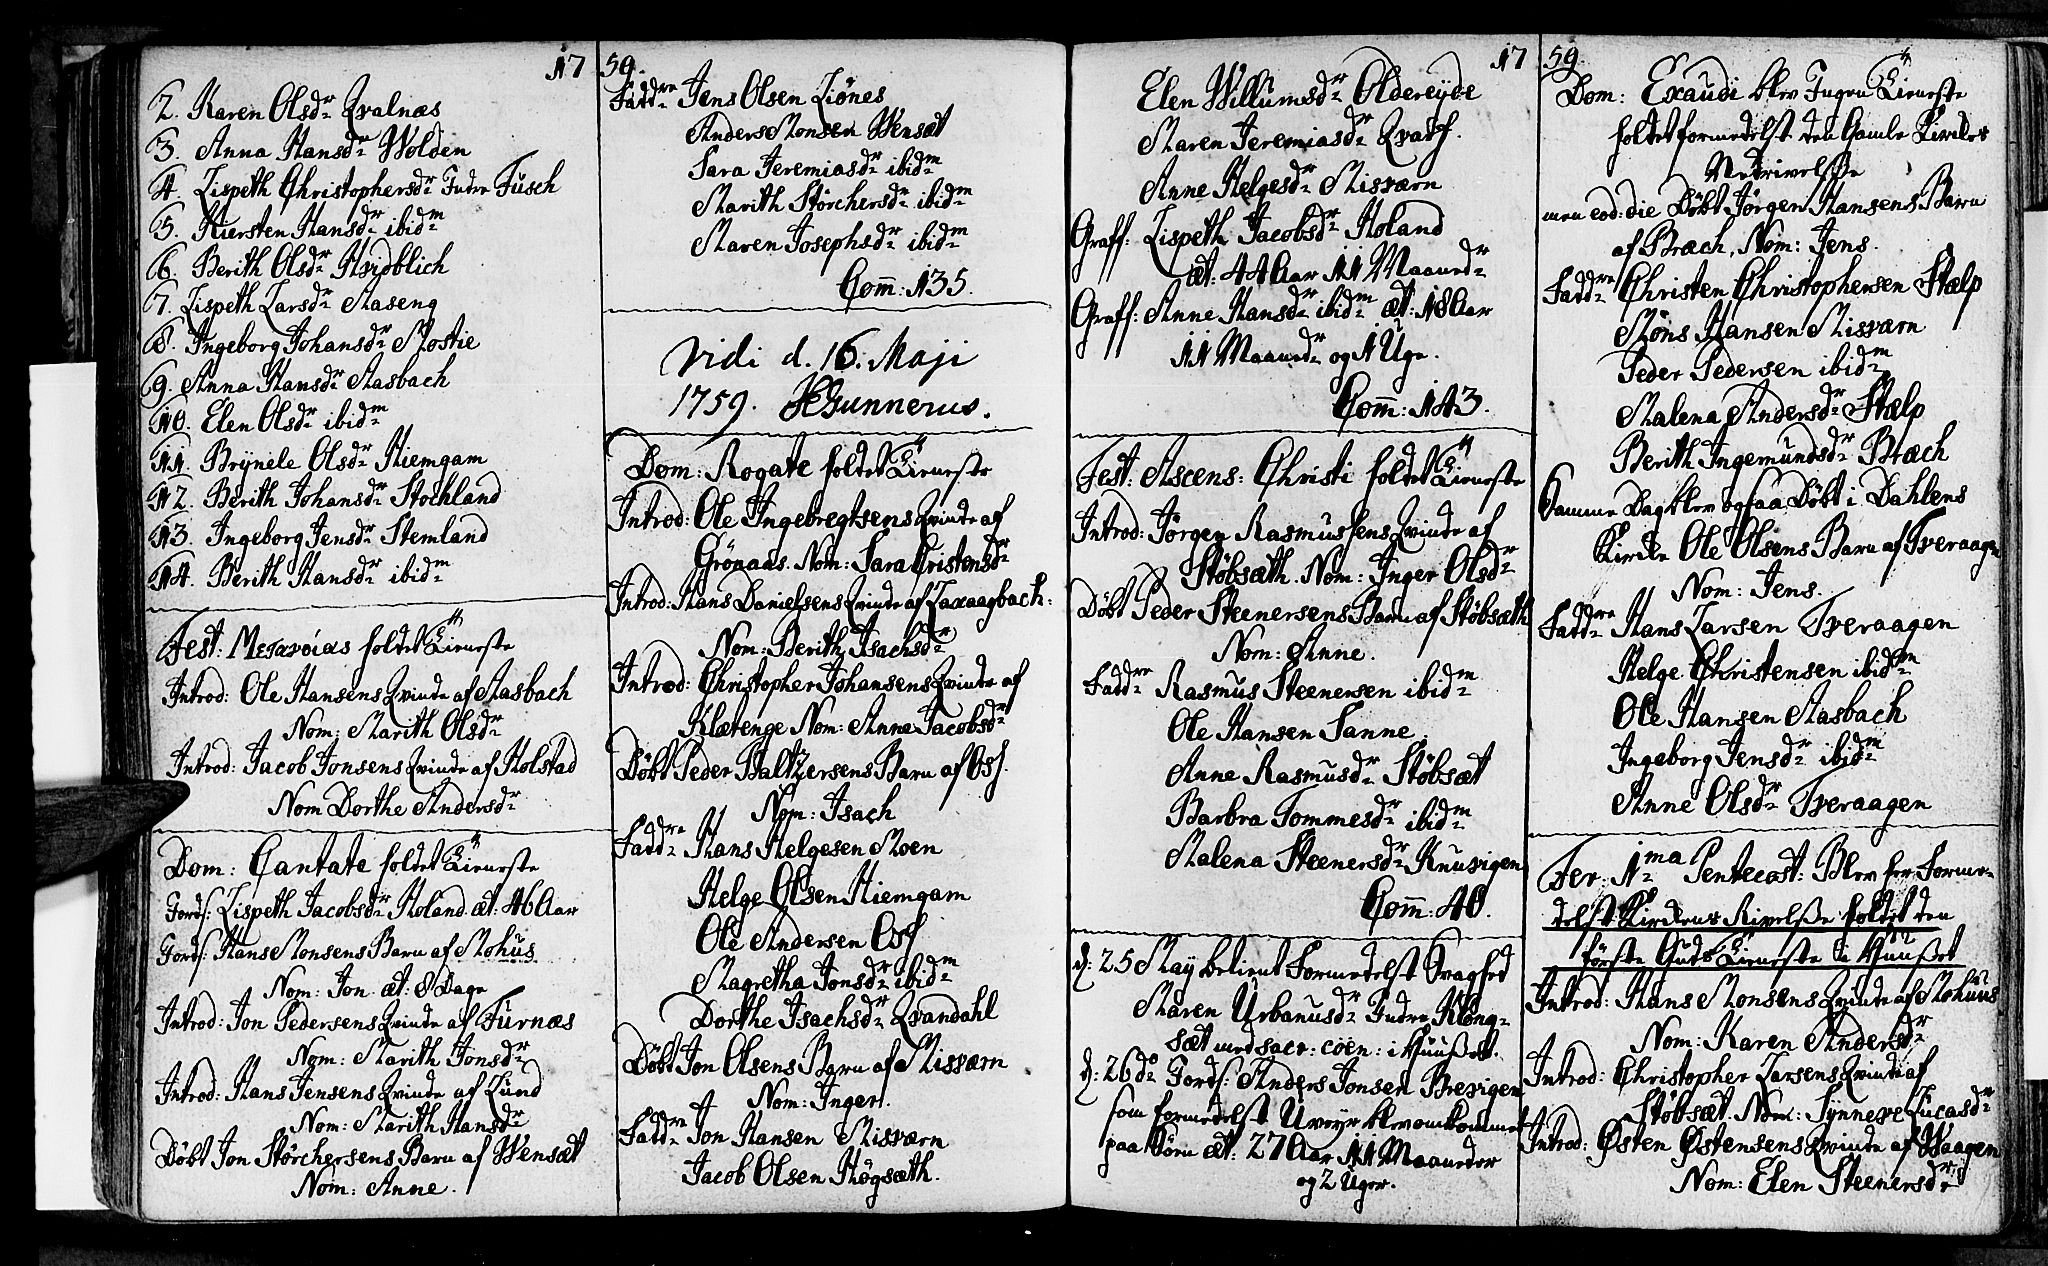 17
2. Karen Olsdr Qvalnæs
3. Anna Hansdr Wolden
4. Lispeth Christophersdr Indre Fusch
5. Kiersten Hansdr ibidm
6. Berith Olsdr Hvidblich
7. Lispeth Larsdr Aaseng
8. Ingeborg Johansdr Mostie
9. Anna Hansdr Aasbach
10. Elen Olsdr ibidm
11. Brynele Olsdr Hiemgam
12. Berith Johansdr Stochland
13. Ingeborg Jensdr Stemland
14. Berith Hansdr ibidm
Fest: Μετανοίας holdet Tieneste
Introd: Ole Hansens Qvinde af Aasbach
Nom: Marith Olsdr
Introd: Jacob Jonsens Qvinde af Holstad
Nom Dorthe Andersdr
Dom: Cantate holdet Tieneste
Jords: Lispeth Jacobsdr Holand æt: 46 Aar
Jords: Hans Monsens Barn af Mohus
Nom: Jon æt: 8 Dage
Introd: Jon Pedersens Qvinde af Furnæs
Nom: Marith Jonsdr
Introd: Hans Jensens Qvinde af Lund
Nom: Marith Hansdr
Döbt Jon Störchersens Barn af Wensæt
Nom: Anne.
59.
Faddre Jens Olsen Liönes
Anders Monsen Wensæt
Sara Jeremiasdr ibidm
Marith Störchersdr ibidm
Maren Josephsdr ibidm
Com̄: 135.
Vidi d. 16. Maji
1759. JEGunnerus.
Dom: Rogate holdet Tieneste
Introd: Ole Ingebregtsens Qvinde af
Grönaas. Nom: Sara Cristensdr
Introd: Hans Danielsens Qvinde af Laxaagbach:
Nom: Berith Isachsdr
Introd: Christopher Johansens Qvinde af
Klætenge Nom: Anne Jacobsdr
Döbt Peder Baltzersens Barn af Osf.
Nom: Isach
Faddre Hans Helgesen Moen
Helge Olsen Hiemgam
Ole Andersen Osf
Magretha Jonsdr ibidm
Dorthe Isachsdr Qvandahl
Döbt Jon Olsens Barn af Misværn
Nom: Inger.
Faddre Jon Hansen Misværn
Jacob Olsen Högsæth.
17
Elen Willumsdr Oldereyde
Maren Jeremiasdr Qvarf.
Anne Helgesdr Misværn
Graff: Lispeth Jacobsdr Holand
æt: 44 Aar 11 Maaneder
Graff: Anne Hansdr ibidm æt: 18 Aar
11 Maaneder og 1 Uge.
Com̄: 143.
Fest: Ascens: Christi holdet Tieneste
Introd: Jörgen Rasmussens Qvinde af
Stöbsæth. Nom: Inger Olsdr
Döbt Peder Steenersens Barn af Stöbsæth
Nom: Anne.
Faddre Rasmus Steenersen ibidm
Ole Hansen Sanne
Anne Rasmusdr Stöbsæt
Barbra Tommesdr ibidm
Malena Steenersdr Knuvigen
Com̄: 40.
d: 25 May betient formedelst Svaghed
Maren Urbanusdr Indre Klong-
sæt med sacr: coen: i Huuset.
d: 26do Jords: Anders Jonsen Brevigen
som formedelst Uveyr blev omkommet
paa Söen æt: 27 Aar 11 Maaneder
og 2 Uger.
59.
Dom: Exaudi blev Ingen Tieneste
holdet formedelst den Gamle Kirches
Nedrivelse
men eod: die Döbt Jörgen Hansens Barn
af Bræch, Nom: Jens.
Faddre Christen Christophersen Skælp
Möns Hansen Misværn
Peder Pedersen ibidm
Malena Andersdr Skælp
Berith Ingemundsdr Bræch
Samme Dag blev ogsaa Döbt i Dahlens
Kirche Ole Olsens Barn af Tveraagen
Nom: Jens.
Faddre Hans Larsen Tveraagen
Helge Christensen ibidm
Ole Hansen Aasbach
Ingeborg Jensdr ibidm
Anne Olsdr Tveraagen
Fer: 1ma Pentecost: Blev her forme-
delst Kirchens Rivelse holdet den
förste Guds Tieneste i Huuset
Introd: Hans Monsens Qvinde af Mohuus
Nom: Karen Andersdr
Introd: Christopher Larsens Qvinde af
Stöbsæt. Nom: Synneve Lucasdr
Introd: Østen Østensens Qvinde af Waagen
Nom: Elen Steenersdr